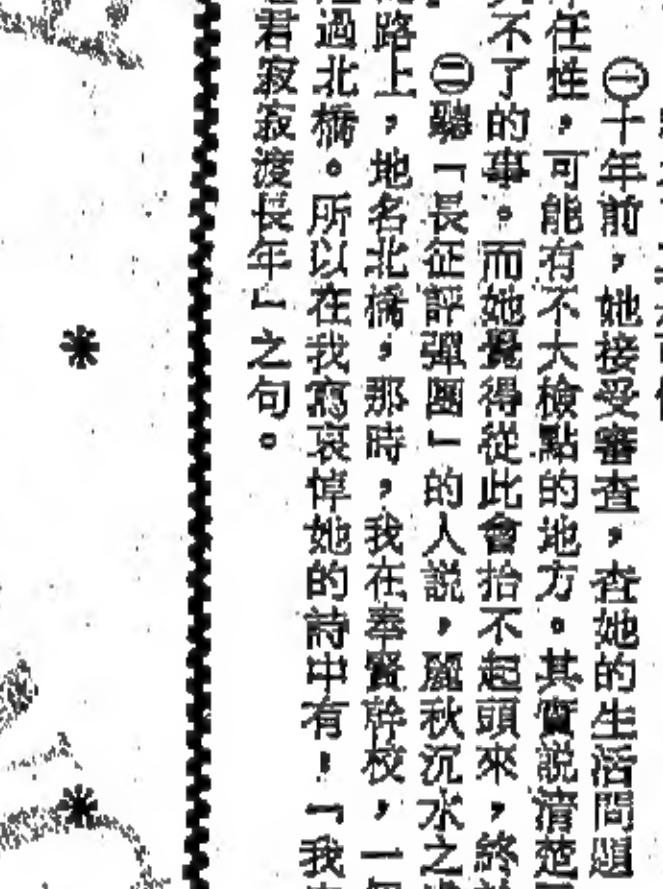 ㊀十年前，她接受審查，查她的生活問題
任性，可能有不大檢點的地方。其實説清楚
不了的事。而她覺得從此會抬不起頭來，終
㊁聽「長征評彈團」的人説，麗秋沉水之
路上，地名北橋，那時，我在奉賢幹校，一
過北橋。所以在我寫哀悼她的詩中有：「我
君寂寂渡長年」之句。